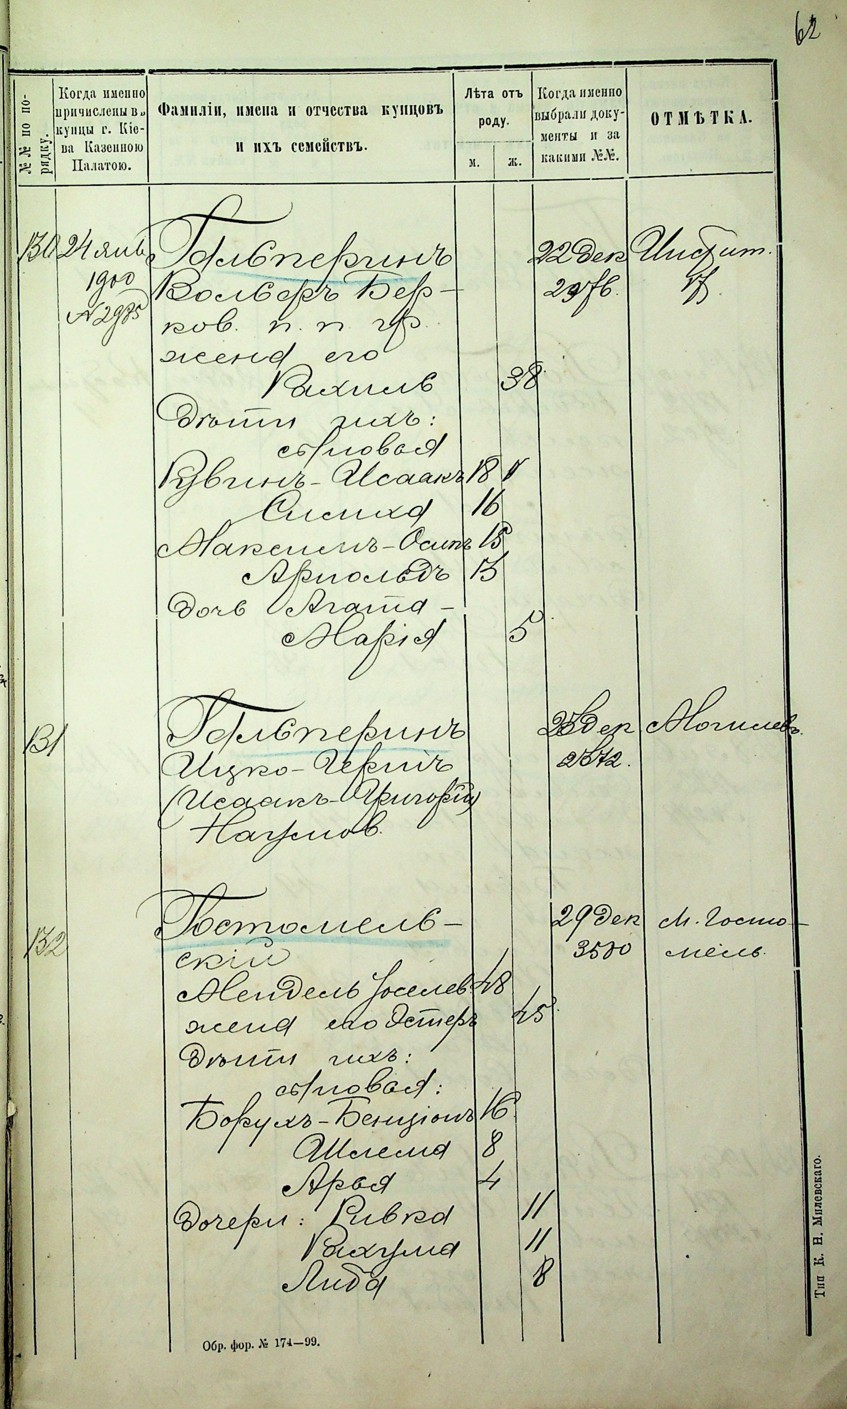 62
№№ по по-
рядку.
Когда именно
причислены въ
купцы г. Кіе-
ва Казенною
Палатою.
Фамиліи, имена и отчества купцовъ
и ихъ семействъ.
Лѣта отъ
роду.
м.
ж.
Когда именно
выбрали доку-
менты и за
какими №№.
ОТМѢТКА.
130 24 янв. Гальперинъ 22 дек
1900 Вольфъ Бер-
№ 2975 ков. п. п. гр.
жена его
Рахиль 38
Дѣти ихъ:
сыновья
Рувинъ-Исаакъ 18
Симха 16
Максимъ-Осипъ 15
Арнольдъ 13
дочь Агата-
Марія 5
131 Гальперинъ 23 дек Могилевъ
Ицко-Гершъ 2572.
(Исаакъ-Григорій)
Наумов.
132 Гостомель- 29 дек м. Госто-
скій 3500 мель.
Мендель Іоселев. 48
жена его Эстеръ 45
Дѣти ихъ:
сыновья:
Борухъ-Бенціонъ 16
Шлема 8
Арья 4
дочери: Ривка 11
Рахума 11
Либа 8
Обр. фор. № 174—99.
Тип К. Н. Милевскаго.